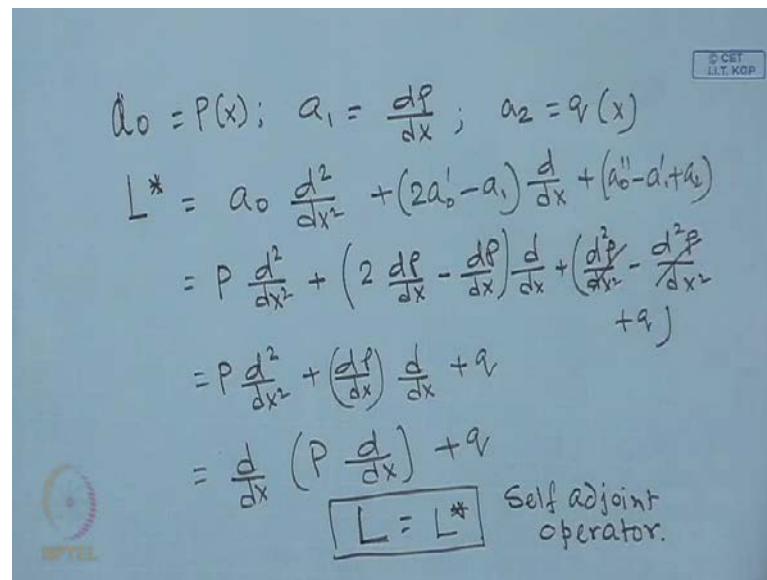 © CET
I.I.T. KGP
a₀ = P(x); a₁ = dP/dx ; a₂ = q(x)
L* = a₀ d²/dx² + (2a₀' - a₁) d/dx + (a₀'' - a₁' + a₂)
= P d²/dx² + (2 dP/dx - dP/dx) d/dx + (d²P/dx² - d²P/dx² + q)
= P d²/dx² + (dP/dx) d/dx + q
= d/dx (P d/dx) + q
L = L* Self adjoint operator.
NPTEL